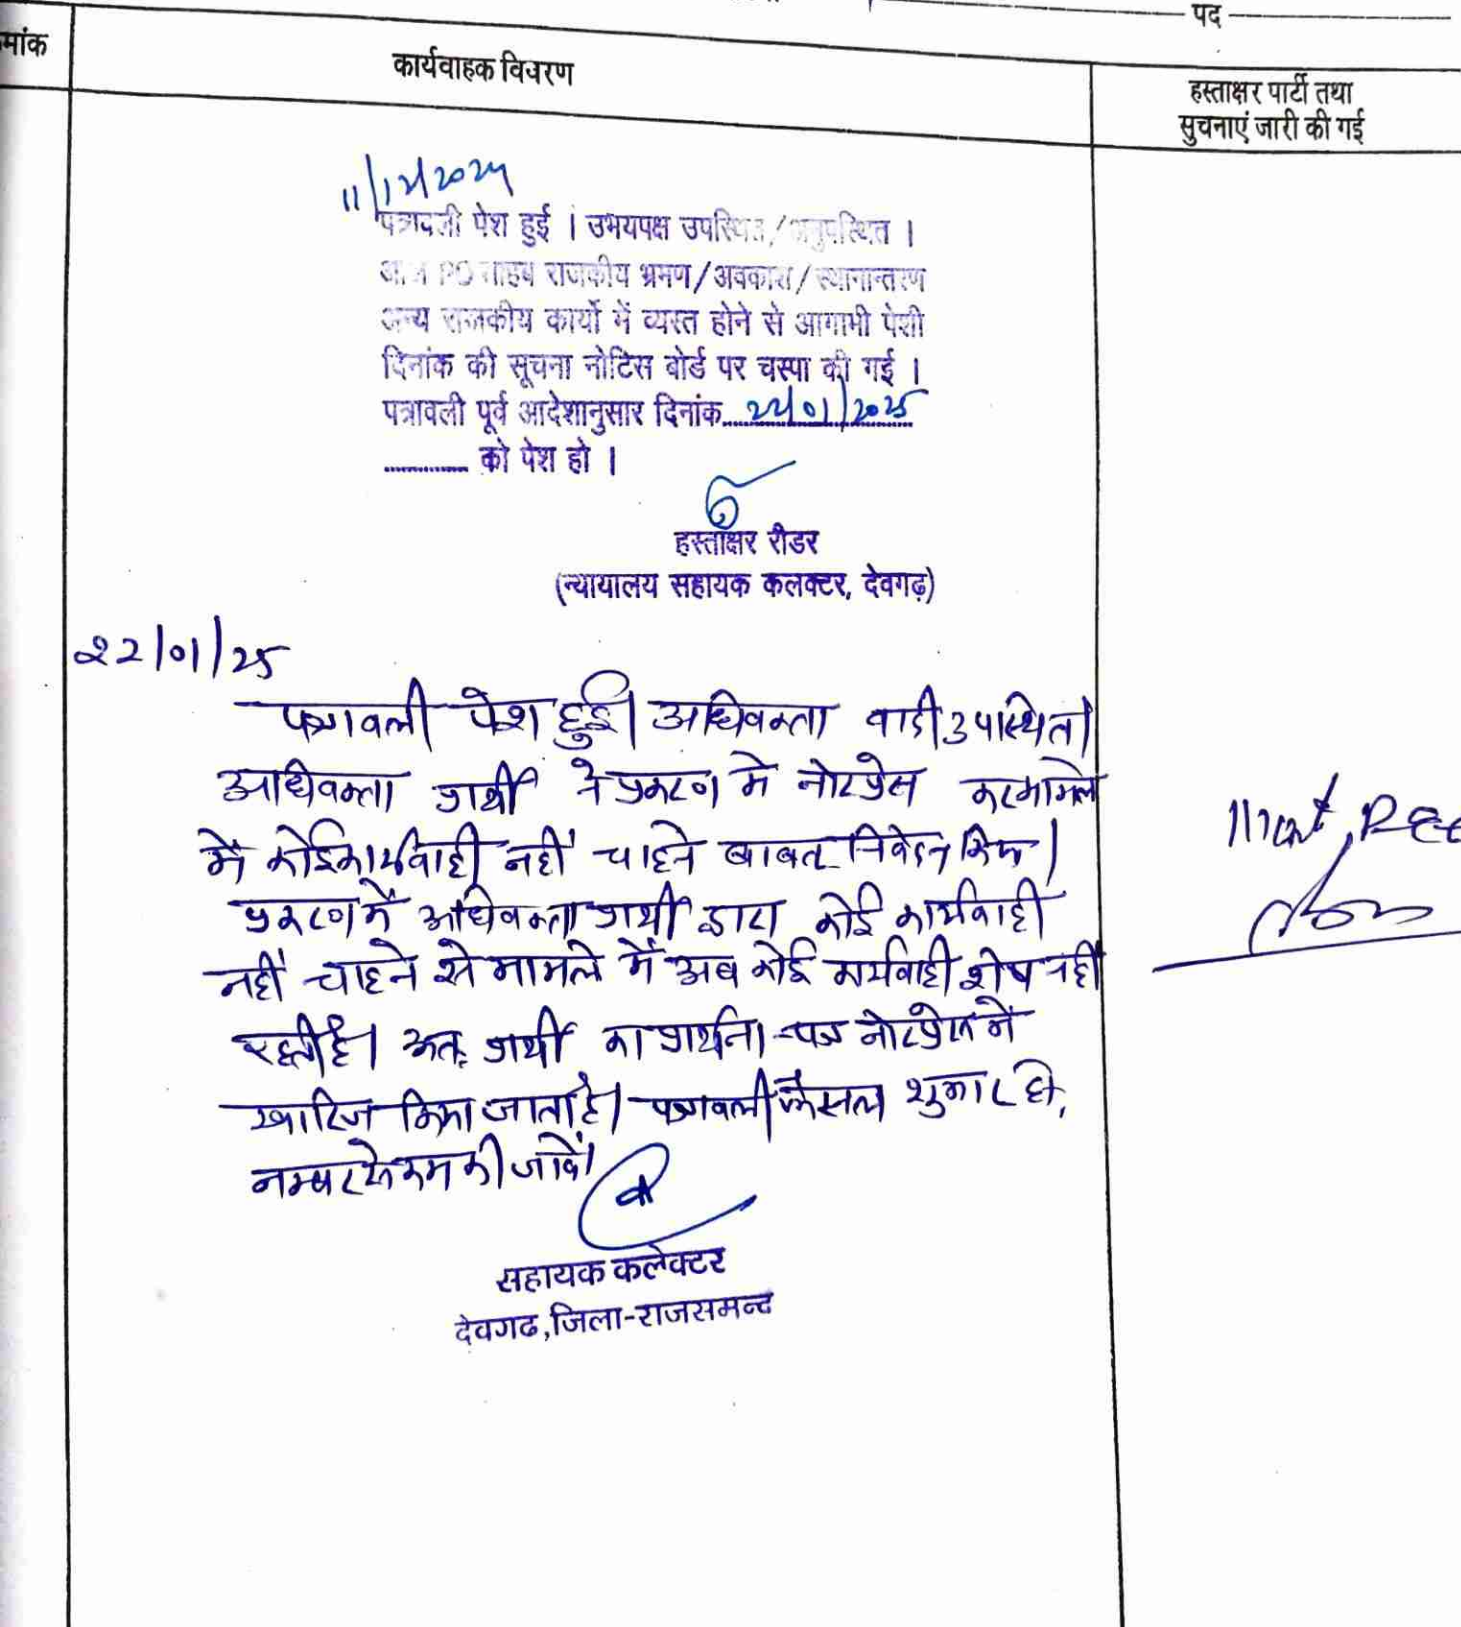 पद
मांक
कार्यवाहक विवरण
हस्ताक्षर पार्टी तथा
सुचनाएं जारी की गई
11/12/2024
पत्रावली पेश हुई । उभयपक्ष उपस्थित/अनुपस्थित ।
आज PO साहब राजकीय भ्रमण/अवकाश/स्थानान्तरण
अन्य राजकीय कार्यो में व्यस्त होने से आगामी पेशी
दिनांक की सूचना नोटिस बोर्ड पर चस्पा की गई ।
पत्रावली पूर्व आदेशानुसार दिनांक 22/01/2025
............ को पेश हो ।
हस्ताक्षर रीडर
(न्यायालय सहायक कलक्टर, देवगढ़)
22/01/25
पत्रावली पेश हुई। अधिवक्ता वादी उपस्थित।
अधिवक्ता प्रार्थी ने प्रकरण मे नोटप्रेस कर मामले
में कोई कार्यवाही नहीं चाहने बाबत् निवेदन किया।
प्रकरण में अधिवक्ता प्रार्थी द्वारा कोई कार्यवाही
नहीं चाहने से मामले में अब कोई कार्यवाही शेष नहीं
रहती है। अतः प्रार्थी का प्रार्थना-पत्र नोटप्रेस में
खारिज किया जाता है। पत्रावली फैसल शुमार हो,
नम्बर से कम की जावें।
सहायक कलेक्टर
देवगढ, जिला-राजसमन्द
Not Pre